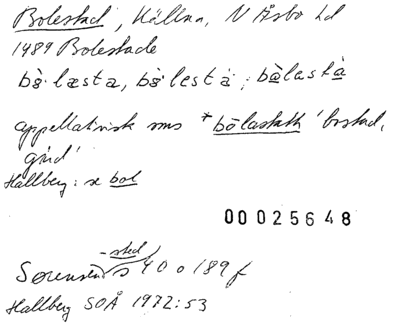 Bolestad, Källna, N Åsbo hd
1489 Bolestade
bò̤læsta, bò̤lestà, bàlastà
appellativisk sms *bōlastath 'bostad,
gård'
Hallberg: se bol
00025648
-sted
Sørensen s 40 o 189 f
Hallberg SOÅ 1972:53